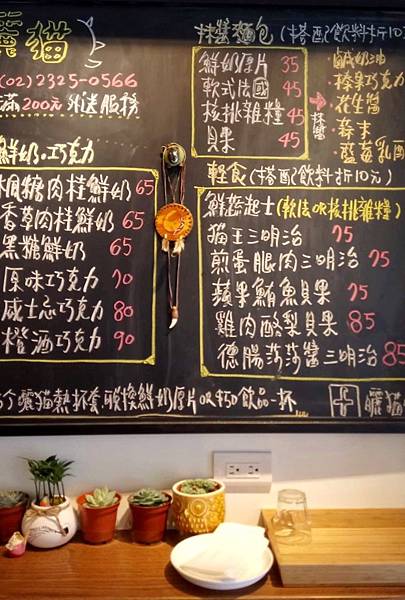 貓
(02) 2325-0566
滿200元 外送服務
鮮奶。巧克力
楓糖肉桂鮮奶 65
香草肉桂鮮奶 65
黑糖鮮奶 65
原味巧克力 70
威士忌巧克力 80
橙酒巧克力 90
抹醬麵包 (搭配飲料折10元
鮮奶厚片 35
軟式法國 45
核桃雜糧 45
貝果 45
抹醬
鹹奶油
榛果巧克力
花生醬
蒜末
藍莓乳酪
輕食 (搭配飲料折10元)
鮮蔬起士 (軟法 OR 核桃雜糧)
貓王三明治 75
煎蛋腿肉三明治 75
蘋果鮪魚貝果 75
雞肉酪梨貝果 85
德腸莎莎醬三明治 85
曬貓熱杯套 兌換鮮奶厚片 OR $50飲品一杯
曬貓